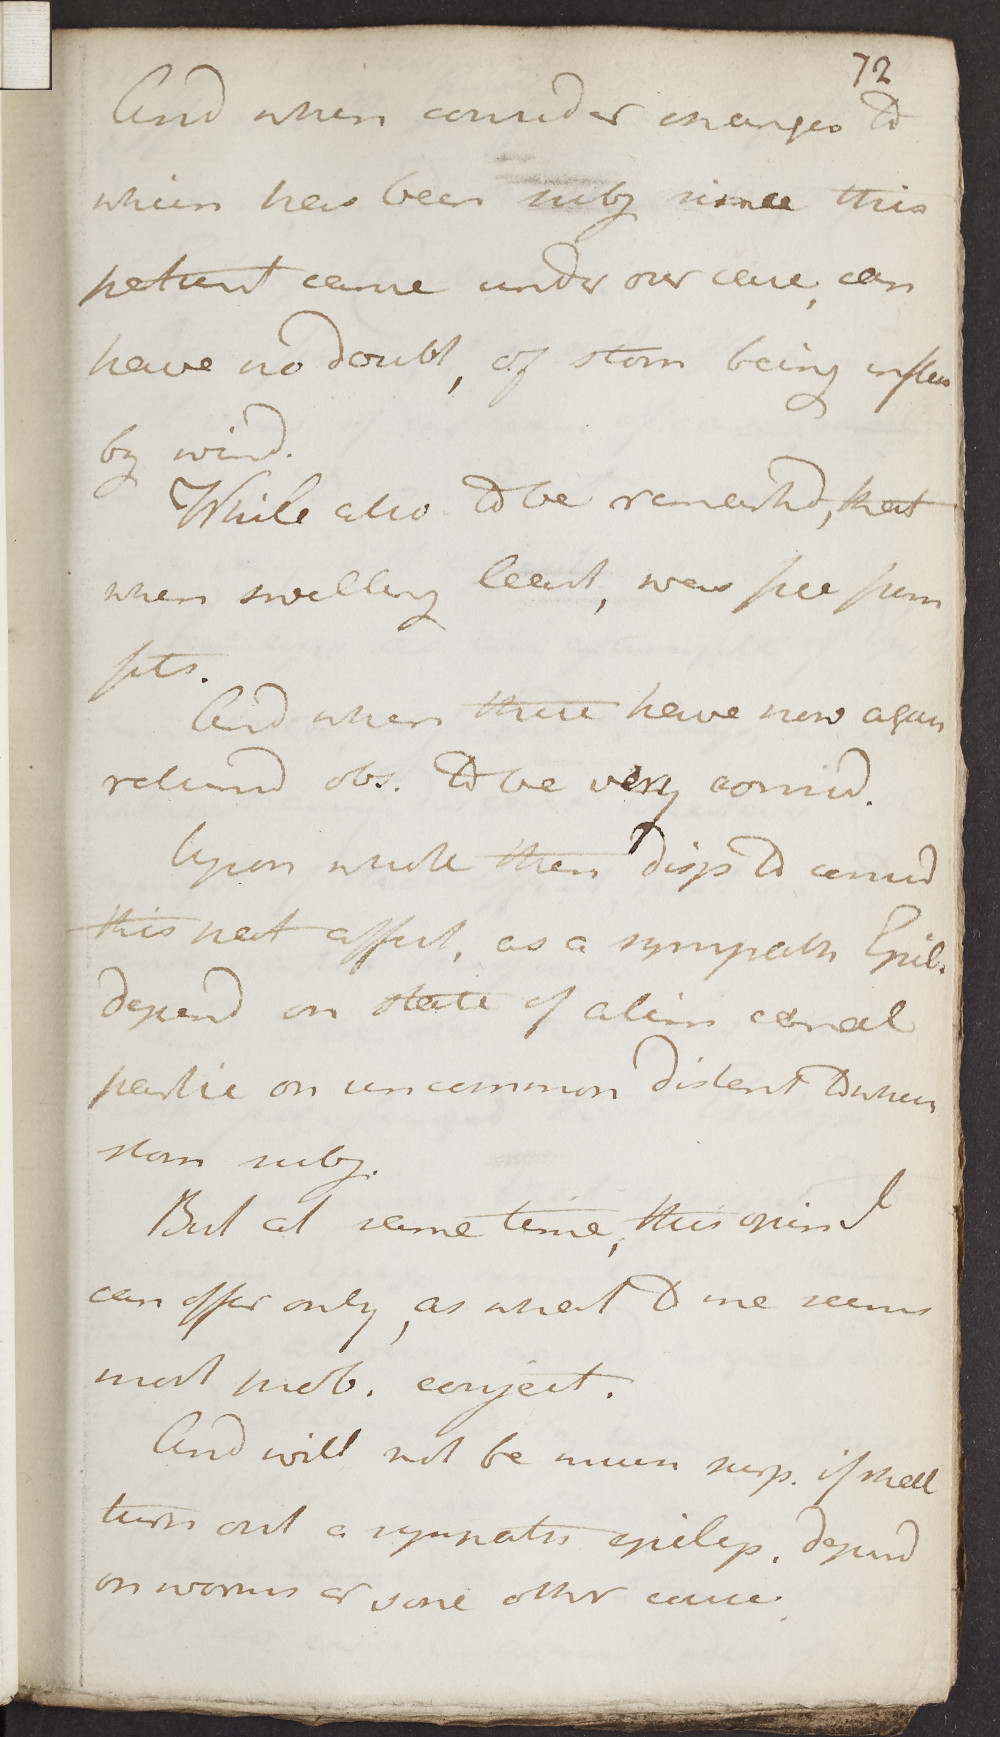 72
And when consider changes to
which has been subj since this
patient came under our care, can
have no doubt, of stom being inflat
by wind.
While also to be remarkd, that
when swelling least, was free from
fits.
And when these have now again
returnd obs. to be very consid.
Upon whole then disps to consid
this neat affect, as a sympath Epil.
depend on state of alim canal
partic on uncommon distent to whch
stom subj.
But at same time, this opin I
can offer only, as what to me seems
most prob. conject.
And will not be much surp. if shall
turn out a sympath epilep. depend
on worms or some other cause.